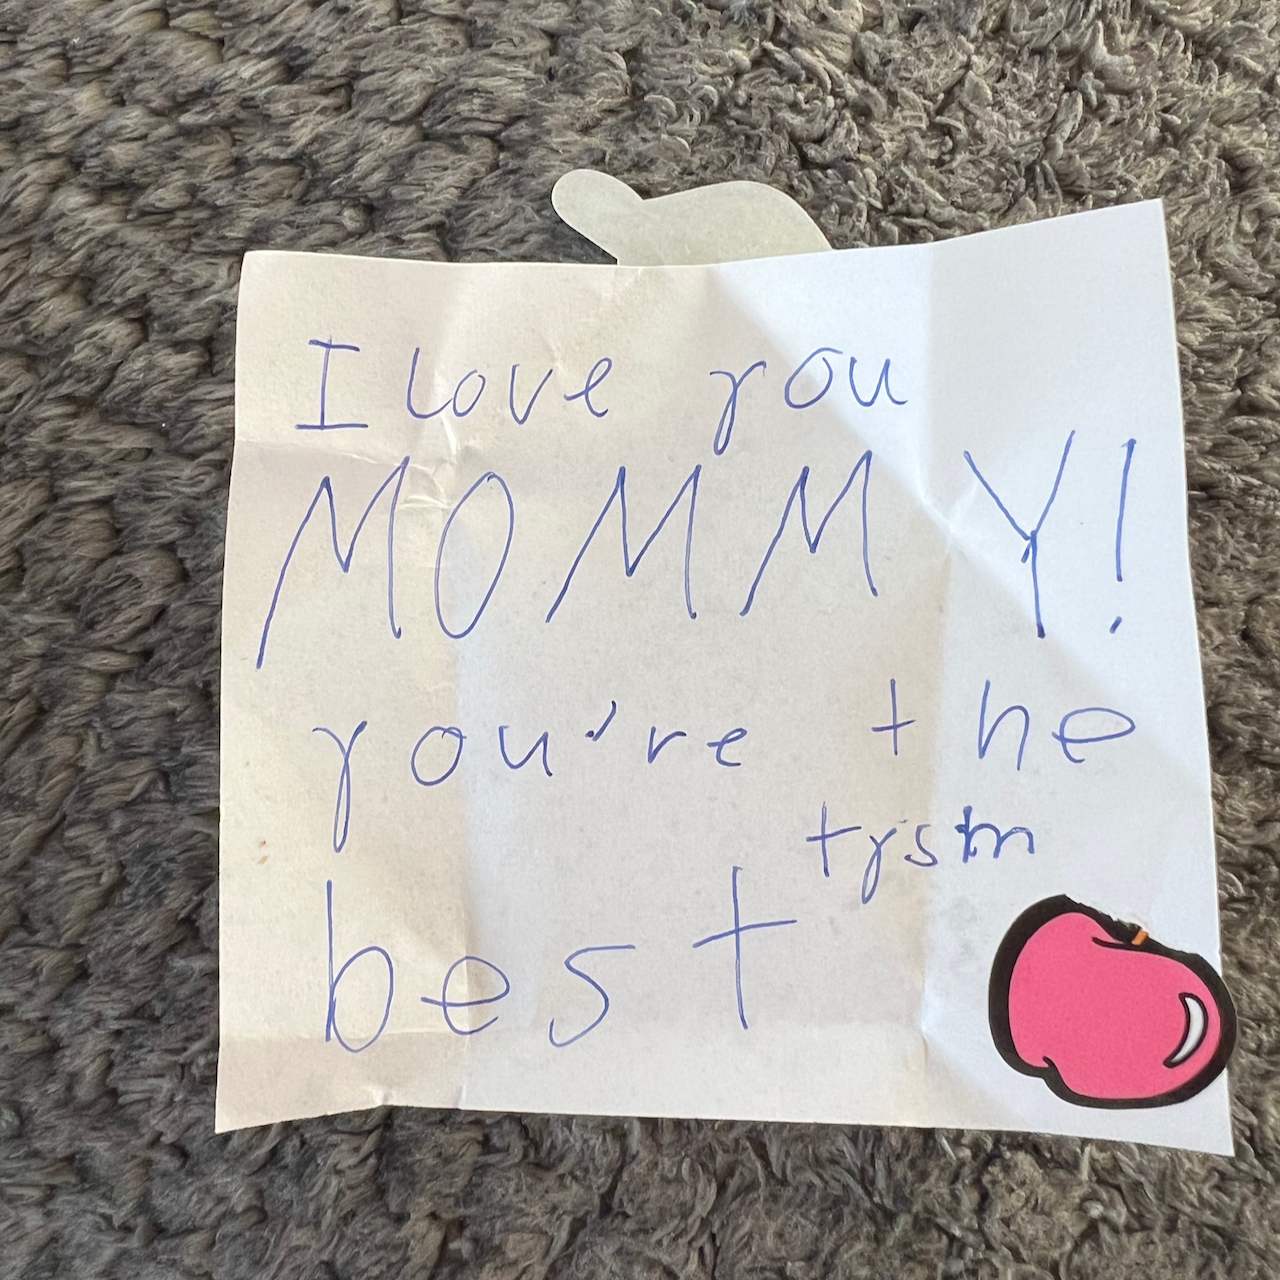 I love you
MOMMY!
you're the
tysm
best